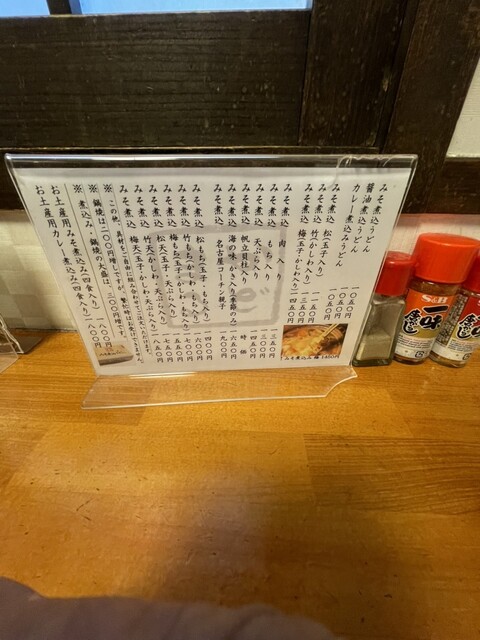 みそ煮込うどん 一〇五〇円
醤油煮込うどん 一〇五〇円
カレー煮込みうどん 一〇五〇円
みそ煮込 松(玉子入り) 一一五〇円
みそ煮込 竹(かしわ入り) 一三五〇円
みそ煮込 梅(玉子・かしわ入り) 一四五〇円
みそ煮込 肉入り 一三五〇円
みそ煮込 もち入り 一三〇〇円
みそ煮込 天ぷら入り 一四五〇円
みそ煮込 帆立貝柱入り 時価
みそ煮込 海の味 かき入り(季節のみ) 一六五〇円
みそ煮込 名古屋コーチン親子 一九〇〇円
みそ煮込 松もち(玉子・もち入り) 一四〇〇円
みそ煮込 竹もち(かしわ・もち入り) 一六〇〇円
みそ煮込 梅もち(玉子・かしわ・もち入り) 一七〇〇円
みそ煮込 松天(玉子・天ぷら入り) 一五五〇円
みそ煮込 竹天(かしわ・天ぷら入り) 一七五〇円
みそ煮込 梅天(玉子・かしわ・天ぷら入り) 一八五〇円
※この他、具材をご自由に組み合わせできますが、繁忙時はお受けできません。
※鍋焼は二〇〇円増しです。
※煮込み、鍋焼の大盛は、三三〇円増です。
お土産用みそ煮込み(四食入り) 一八〇〇円
お土産用カレー煮込み(四食入り) 一八〇〇円
みそ煮込み 梅 1450円
S&B
一味
唐がらし